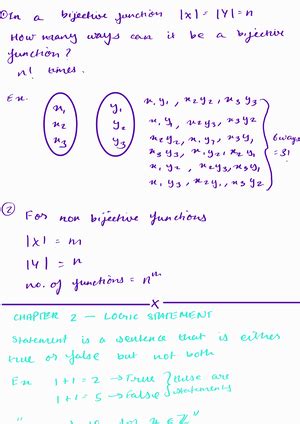 ① In a bijective function |X| = |Y| = n
How many ways can it be a bijective
function?
n! times.
Ex.
x₁
x₂
x₃
y₁
y₂
y₃
x₁y₁, x₂y₂, x₃y₃
x₁y₁, x₂y₃, x₃y₂
x₂y₂, x₁y₃, x₃y₁
x₃y₃, x₁y₂, x₂y₁
x₁y₂, x₂y₃, x₃y₁
x₁y₃, x₂y₁, x₃y₂
6 ways
= 3!
② For non bijective functions
|X| = m
|Y| = n
no. of functions = nᵐ
x
CHAPTER 2 — LOGIC STATEMENT
Statement is a sentence that is either
true or false but not both
Ex 1+1 = 2 → True
1+1 = 5 → False
these are
statements